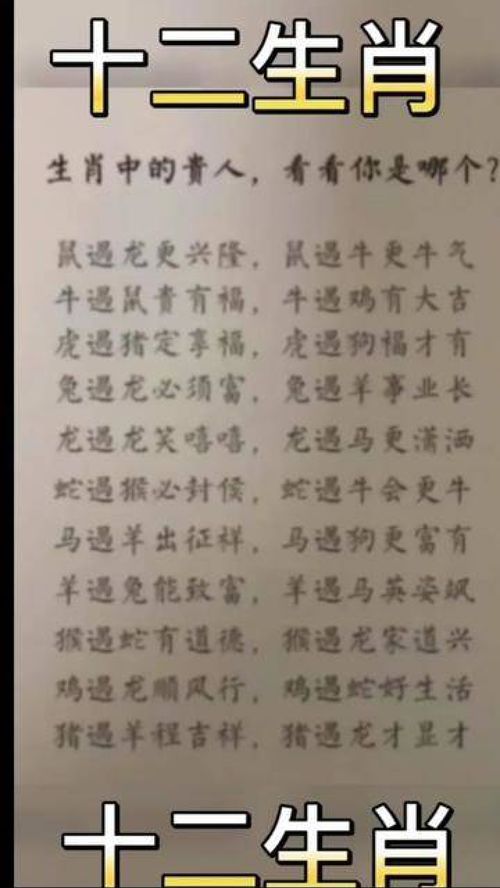 十二生肖
生肖中的贵人，看看你是哪个？
鼠遇龙更兴隆，鼠遇牛更牛气
牛遇鼠贵有福，牛遇鸡有大吉
虎遇猪定享福，虎遇狗福才有
兔遇龙必须富，兔遇羊事业长
龙遇龙笑嘻嘻，龙遇马更潇洒
蛇遇猴必封侯，蛇遇牛会更牛
马遇羊出征祥，马遇狗更富有
羊遇兔能致富，羊遇马英姿飒
猴遇蛇有道德，猴遇龙家道兴
鸡遇龙顺风行，鸡遇蛇好生活
猪遇羊程吉祥，猪遇龙才显才
十二生肖